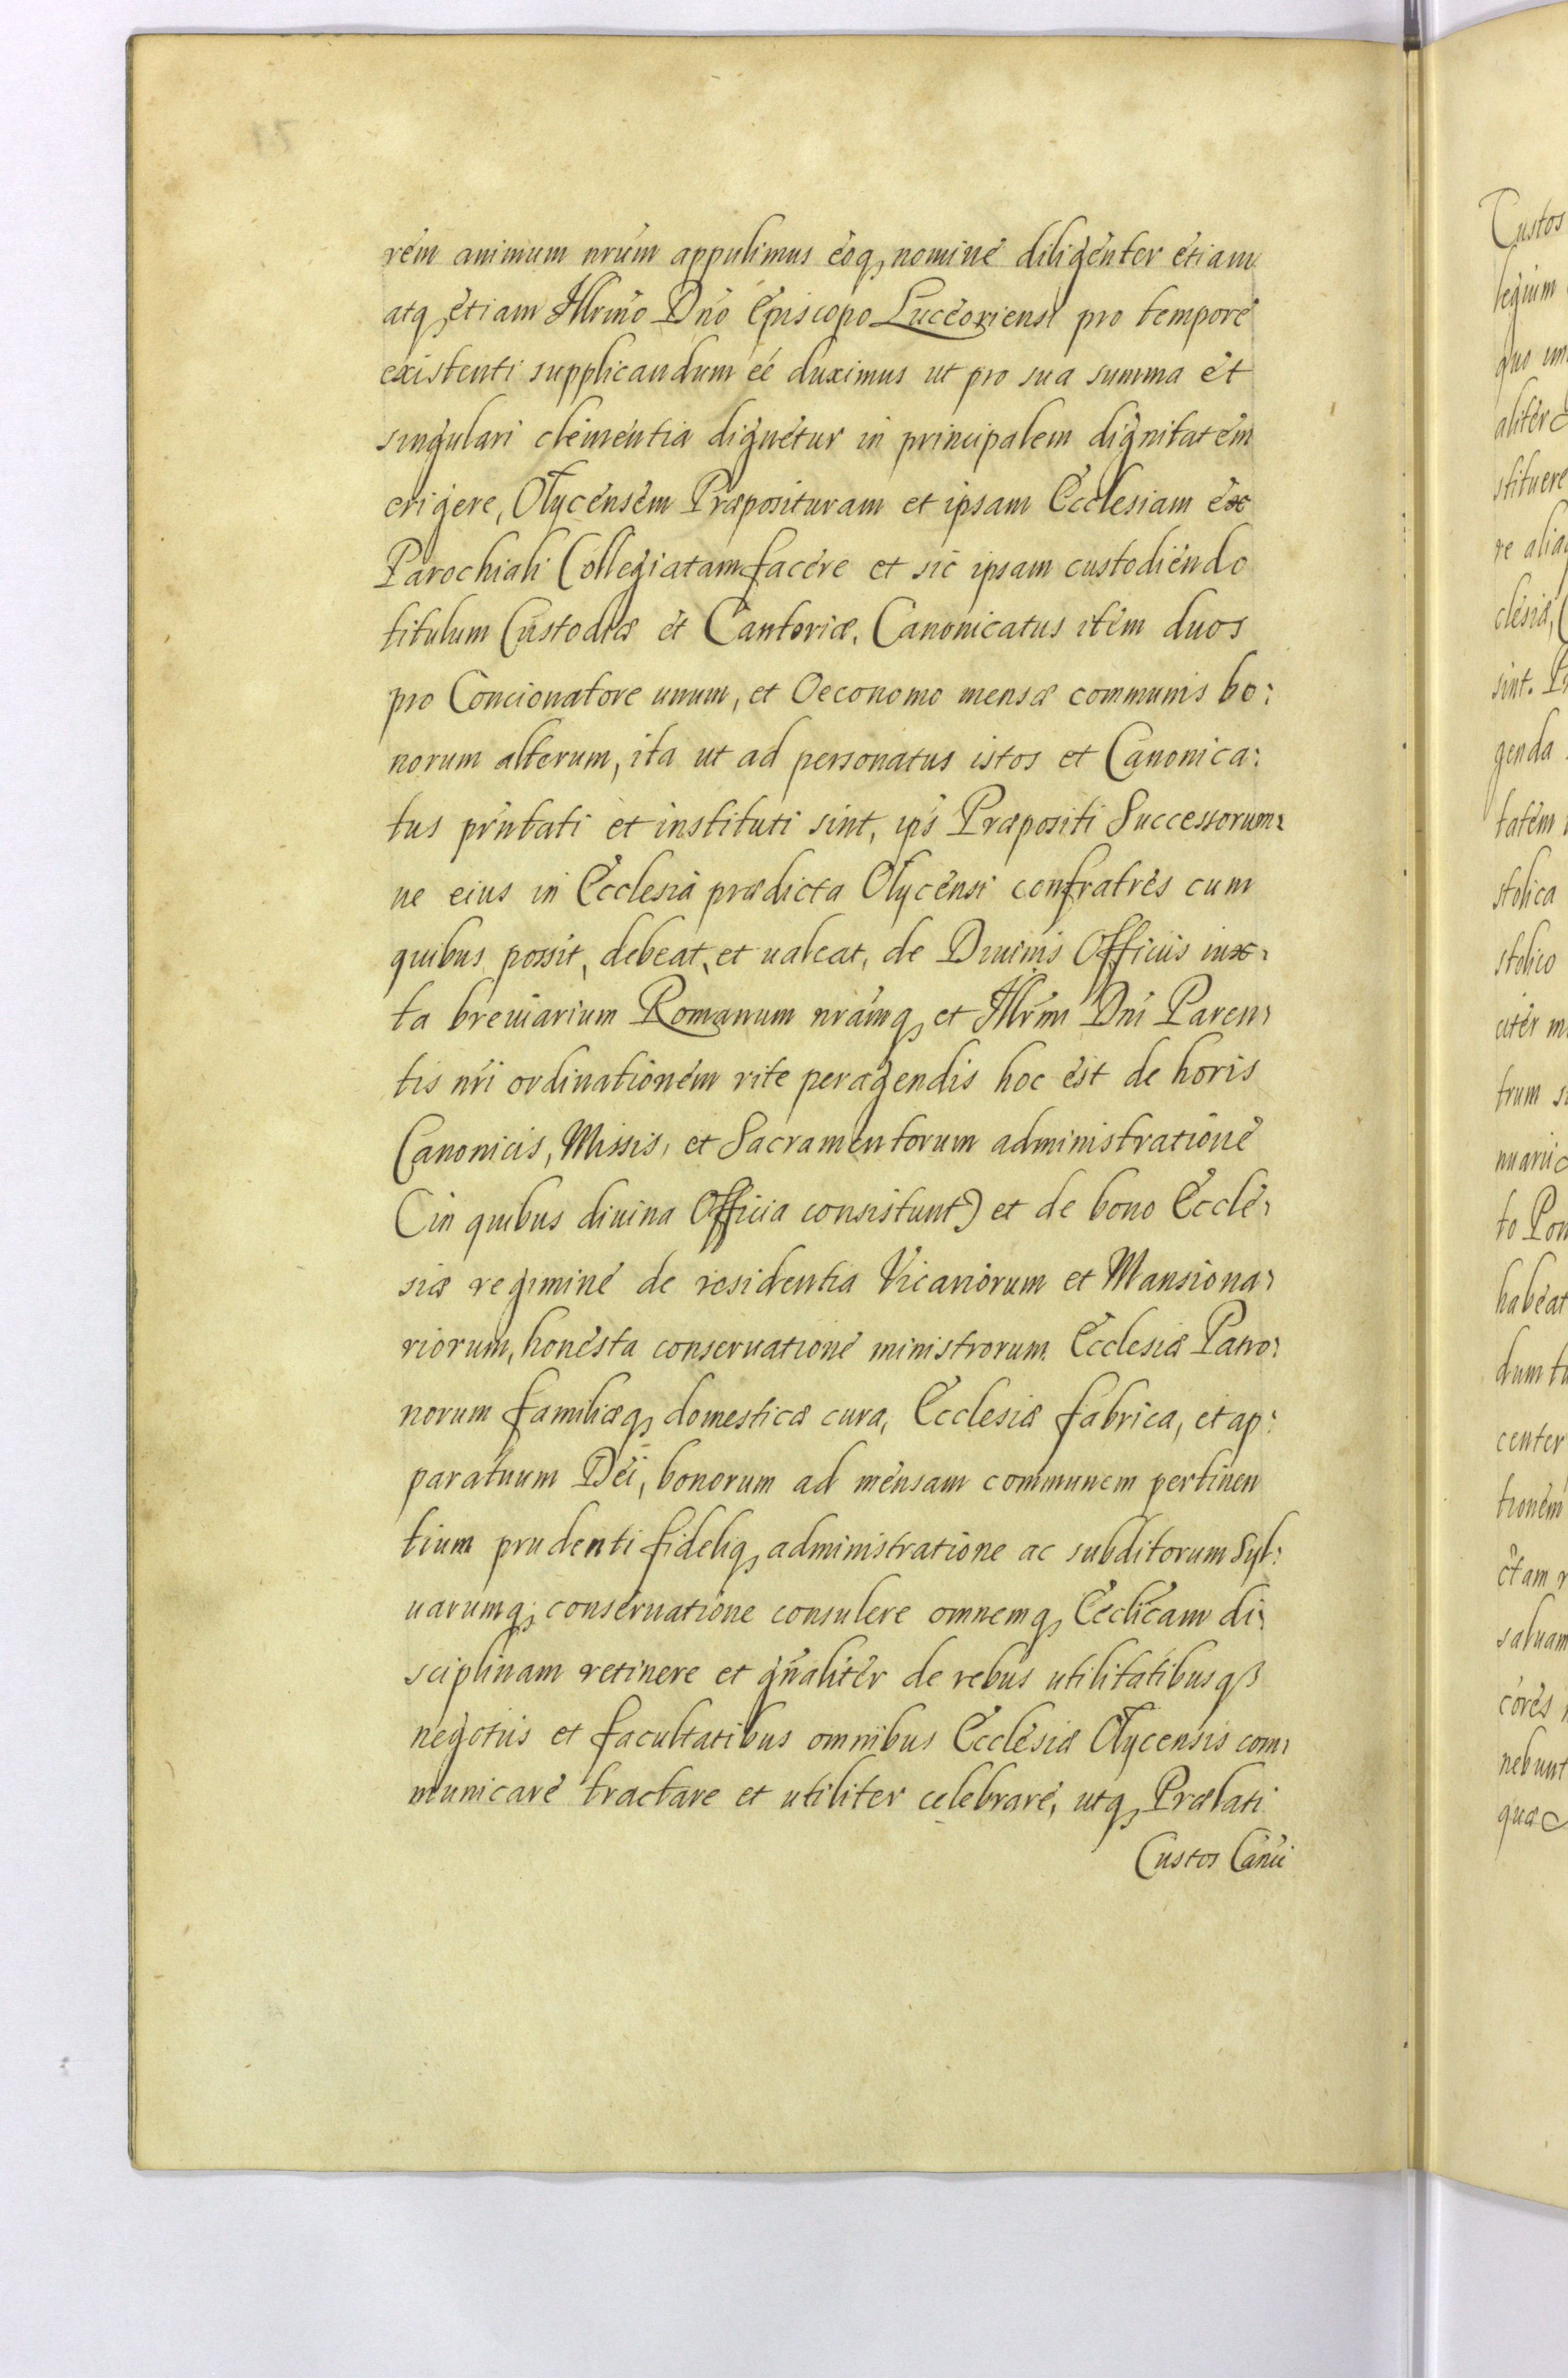 rem animum nrum appulimus eoq, nomine diligenter etiam
atq, etiam Illrmo Dno Episcopo Luceoriensi pro tempore
existenti supplicandum eé duximus ut pro sua summa et
singulari clementia dignetur in principalem dignitatem
erigere, Olycensem Præposituram et ipsam Ecclesiam ex
Parochiali Collegiatam facere et sic ipsam custodiendo
titulum Custodiæ et Cantoriæ, Canonicatus item duos
pro Concionatore unum, et Oeconomo mensæ communis bo:
norum alterum, ita ut ad personatus istos et Canonica:
tus prntati et instituti sint, ips Præpositi Successorum:
ne eius in Ecclesia prædicta Olycensi confratres cum
quibus possit, debeat, et ualeat, de Diuinis Officiis iux:
ta breuiarium Romanum nramq, et Illrmi Dni Paren:
tis nri ordinationem rite peragendis hoc est de horis
Canonicis, Missis, et Sacramentorum administratione
(in quibus diuina Officia consistunt) et de bono Eccle:
siæ regimine de residentia Vicariorum et Mansiona:
riorum, honesta conseruatione ministrorum Ecclesiæ Patro:
norum familiæq, domesticæ cura, Ecclesiæ fabrica, et ap:
paratuum Dei, bonorum ad mensam communem pertinen
tium prudenti fideliq, administratione ac subditorum Syl:
uarumq; conseruatione consulere omnemq, Ecclicam di:
sciplinam retinere et gnaliter de rebus utilitatibusqꝫ
negotiis et facultatibus omnibus Ecclesiæ Olycensis com:
municare tractare et utiliter celebrare, utq, Prælati
Custos Canci
Custos
legium
quo
aliter
stituere
re
clesiæ,
sint.
genda
tatem
stolica
stolico
trum
to
habeat
dum
center
tionem
saluam
nebunt
quæ